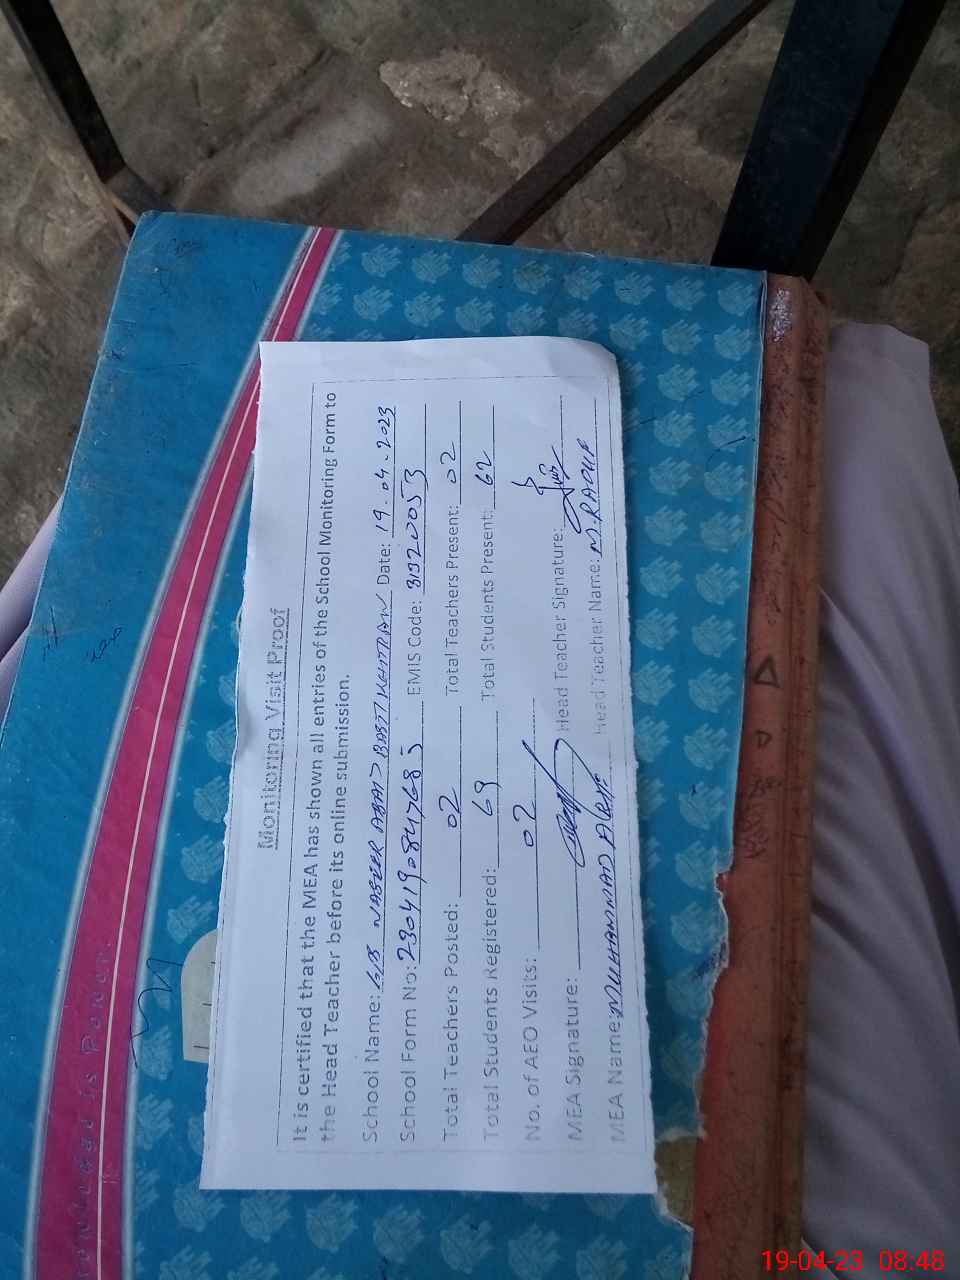 Monitoring Visit Proof
It is certified that the MEA has shown all entries of the School Monitoring Form to
the Head Teacher before its online submission.
School Name: G/S NASEER ABAD BASTI KHITRAN Date: 19.04.2023
School Form No: 230419084768 EMIS Code: 31320053
Total Teachers Posted: 02 Total Teachers Present: 02
Total Students Registered: 69 Total Students Present: 62
No. of AEO Visits: 02
MEA Signature: Head Teacher Signature:
MEA Name: MUHAMMAD Head Teacher Name: M. RAOUF
is Power
19-04-23 08:48